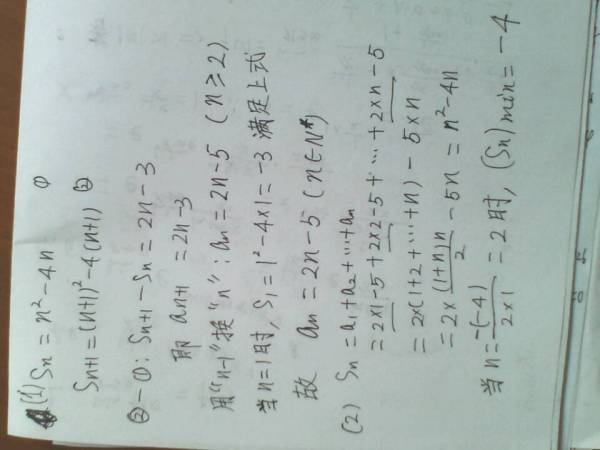 (1) Sn = n²-4n ①
Sn+1 = (n+1)²-4(n+1) ②
②-①: Sn+1-Sn = 2n-3
即 an+1 = 2n-3
用"n-1"换"n": an = 2n-5 (n≥2)
当n=1时, S1=1²-4×1=-3 满足上式
故 an = 2n-5 (n∈N*)
(2) Sn = a1+a2+…+an
= 2×1-5+2×2-5+…+2×n-5
= 2×(1+2+…+n)-5×n
= 2×(1+n)n/2-5n = n²-4n
当n=-(-4)/2×1=2时, (Sn)min=-4